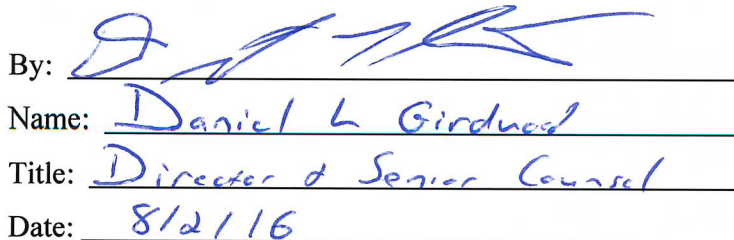 By:
Name: Daniel L Girdwood
Title: Director & Senior Counsel
Date: 8/2/16